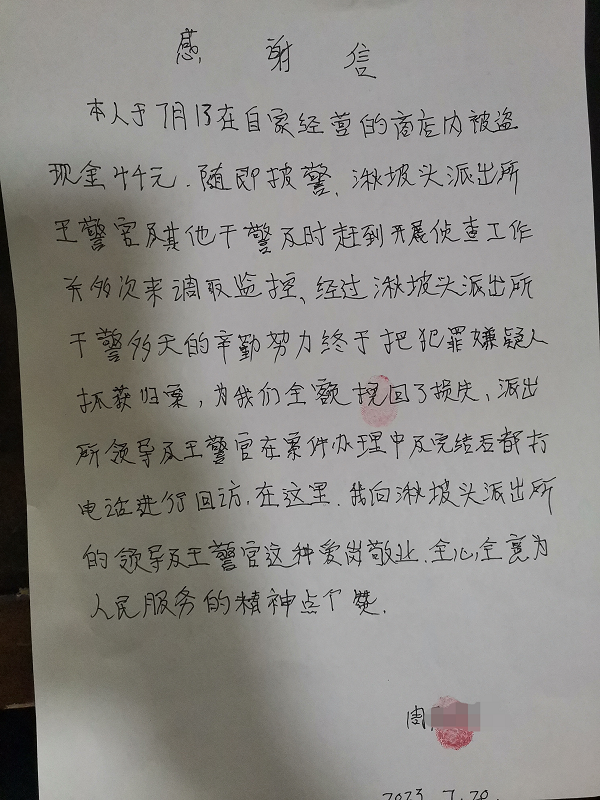 感 谢 信
本人于7月13在自家经营的商店内被盗
现金4千元.随即披警、湫坡头派出所
王警官及其他干警及时赶到开展侦查工作
并多次来调取监控、经过湫坡头派出所
干警多天的辛勤努力终于把犯罪嫌疑人
抓获归案,为我们全额挽回了损失、派出
所领导及王警官在案件办理中及完结后都打
电话进行回访.在这里.我向湫坡头派出所
的领导及王警官这种爱岗敬业.全心全意为
人民服务的精神点个赞.
周
2023.7.20.